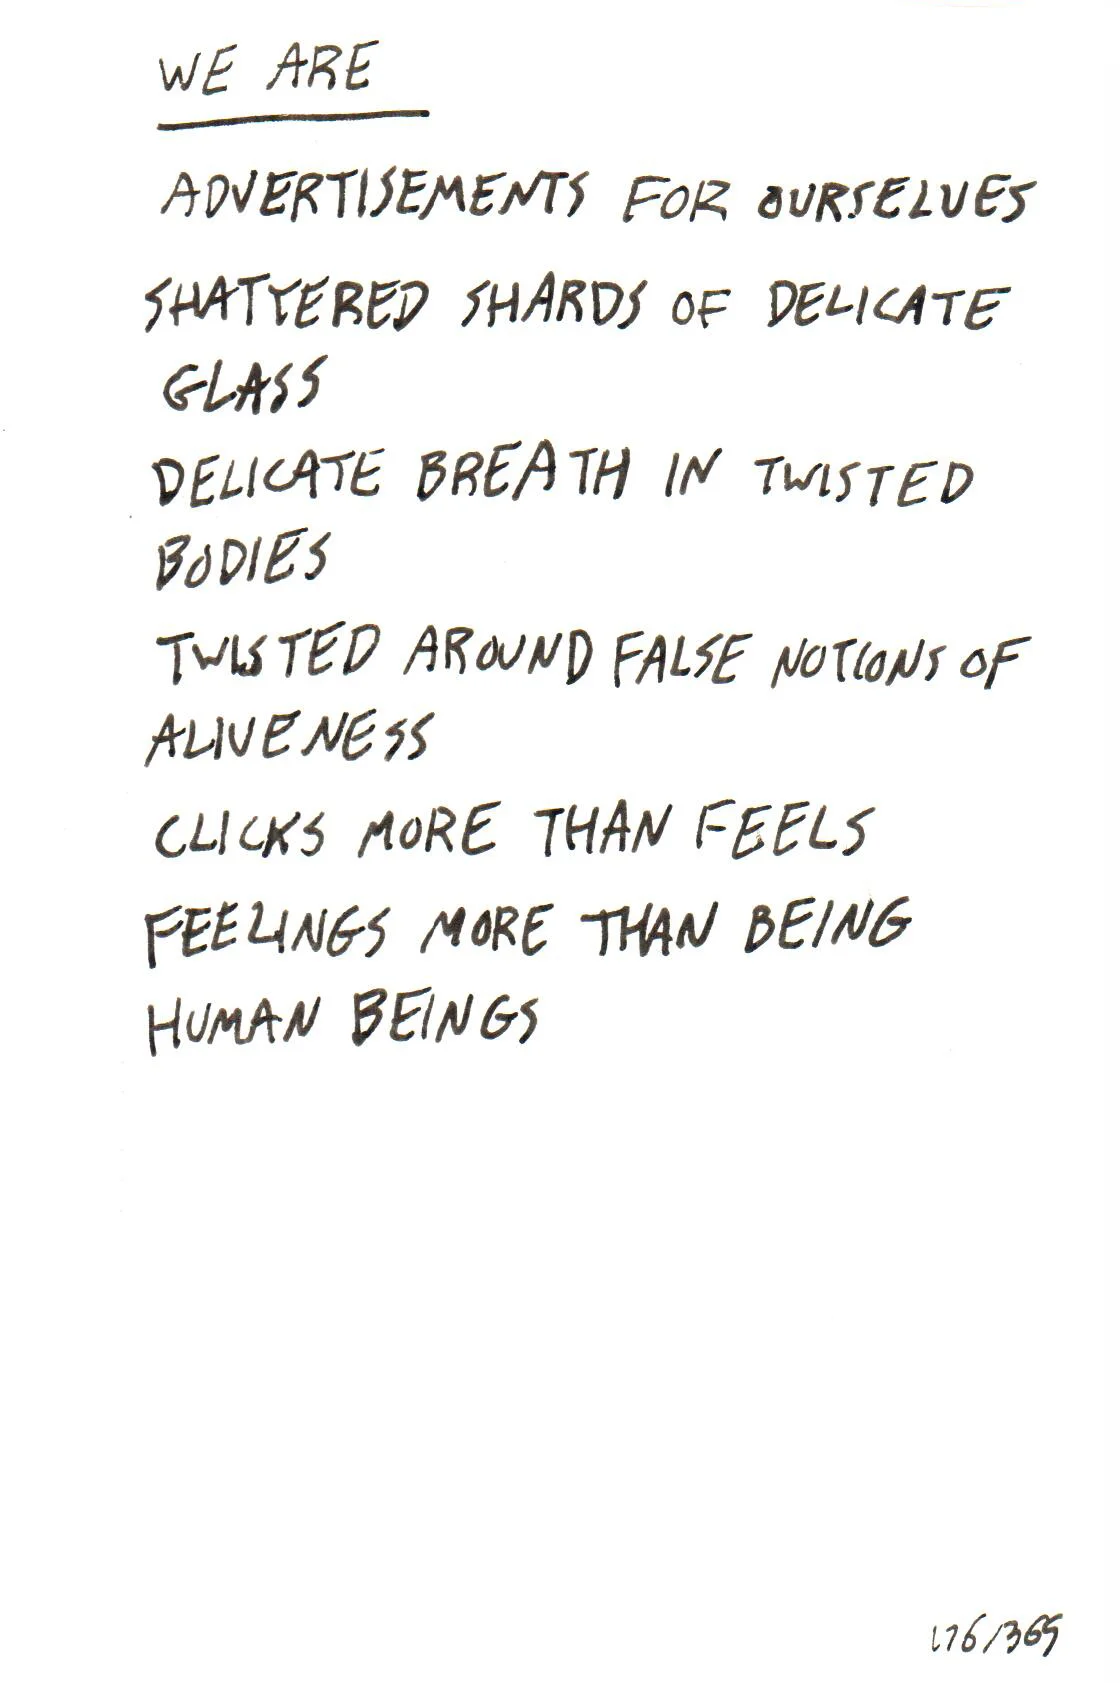 WE ARE
ADVERTISEMENTS FOR OURSELVES
SHATTERED SHARDS OF DELICATE
GLASS
DELICATE BREATH IN TWISTED
BODIES
TWISTED AROUND FALSE NOTIONS OF
ALIVENESS
CLICKS MORE THAN FEELS
FEELINGS MORE THAN BEING
HUMAN BEINGS
176/365